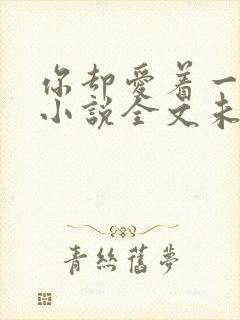 你却爱着一
小說全文未
青絲舊夢